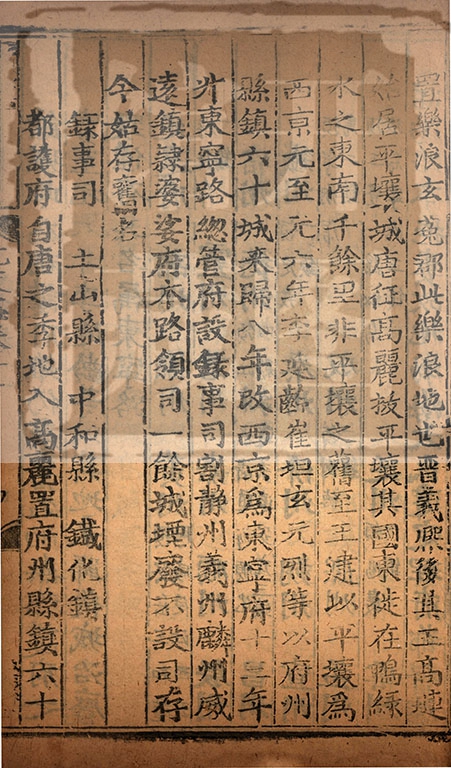 置樂浪玄菟郡此樂浪地也晉義熙後其王高璉
始居平壤城唐征高麗拔平壤其國東徙在鴨緑
水之東南千餘里非平壤之舊至王建以平壤為
西京元至元六年李延齡崔坦玄元烈等以府州
縣鎮六十城來歸八年改西京爲東寧府十三年
升東寧路總管府設録事司割靜州義州麟州威
遠鎮隷婆娑府本路領司一餘城堙廢不設司存
今姑存舊名
録事司 土山縣 中和縣 鐵化鎮
都護府自唐之季地入高麗置府州縣鎮六十